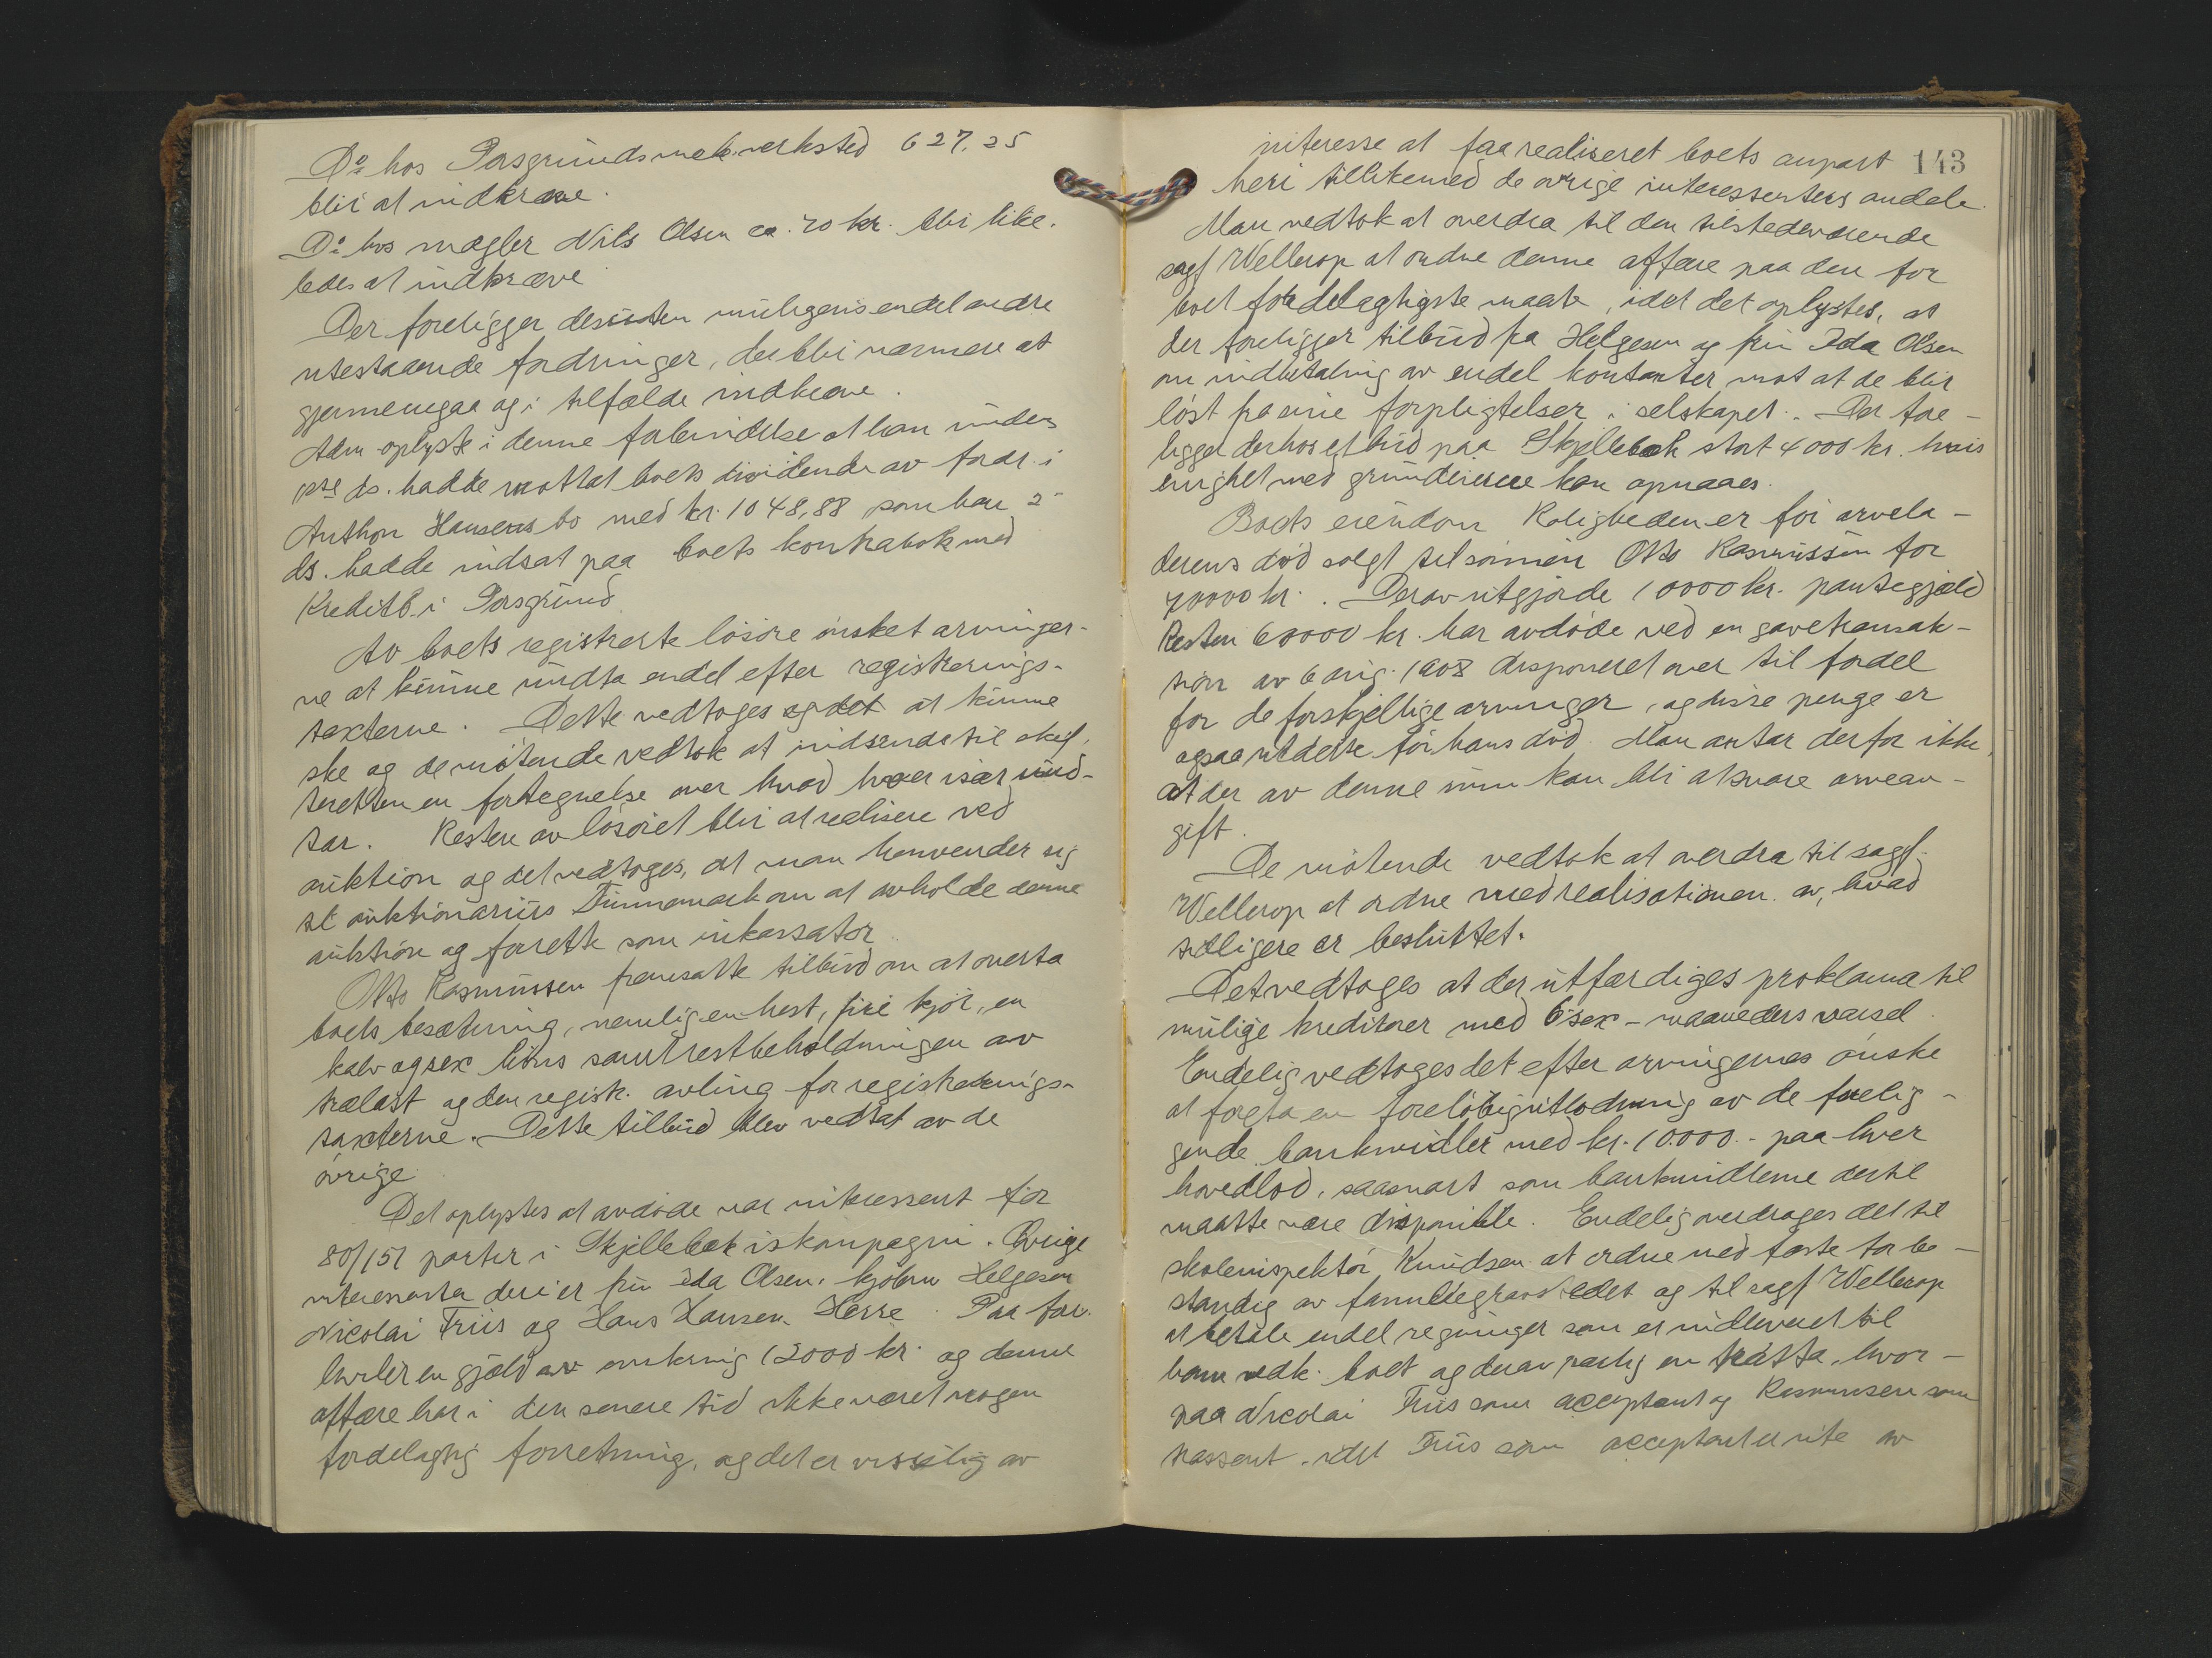 Do hos Porsgrunds mek. verksted 627,25
blir at indkræve.
Do hos mægler Nils Olsen ca. 70 kr. blir like-
ledes at indkræve
Der foreligger desuten muligens endel andre
utestaaende fordringer, der blir nærmere at
gjennemgaa og i tilfælde indkræve.
Adm. oplyste i denne forbindelse at han under
1ste ds. hadde mottat boets dividende av fordr. i
Anthon Hansens bo med kr. 1048,88 som han 2-
ds. hadde indsat paa boets kontrabok med
Kreditb. i Porsgrund
Av boets registrerte løsøre ønsket arvinger-
ne at kunne undta endel efter registrerings-
taxterne. Dette vedtoges og det at kunne
ske og de møtende vedtok at indsende til skif-
teretten en fortegnelse over hvad hver især und-
tar. Resten av løsøret blir at realisere ved
auktion og det vedtoges, at man henvender sig
til auktionarius Finnemark om at avholde denne
auktion og forrette som inkassator
Otto Rasmussen fremsatte tilbud om at overta
boets besætning, nemlig en hest, fire kjør, en
kalv og sex høns samt restbeholdningen av
trælast og den regist. avling for registrerings-
taxterne. Dette tilbud blev vedtat av de
øvrige
Det oplystes at avdøde var interessent for
80/151 parter i Skjellebek iskompagni. Øvrige
interessenter deri er fru Ida Olsen, kjøbm Helgesen
Nicolai Friis og Hans Hansen, Herre. Paa for-
hviler en gjæld av omkring 12000 kr. og denne
affære har i den senere tid ikke været nogen
fordelagtig forretning, og det er visselig av
143
interesse at faa realiseret boets anpart
heri tillikemed de øvrige interessenters andele.
Man vedtok at overdra til den tilstedeværende
sagf Wellerop at ordne denne affære paa den for
boet fordelagtigste maate, idet det oplystes, at
der foreligger tilbud fra Helgesen og fru Ida Olsen
om indbetaling av endel kontanter mot at de blir
løst fra sine forpligtelser i selskapet. Der fore-
ligger derhos et bud paa Skjellebek stort 4000 kr. hvis
enighet med grundeierne kan opnaaes.
Boets eiendom Roligheden er før arvela-
derens død solgt til sønnen Otto Rasmussen for
70000 kr. Derav utgjorde 10000 kr. pantegjæld
Resten 60000 kr. har avdøde ved en gavetransak-
tion av 6 aug. 1908 disponeret over til fordel
for de forskjellige arvinger, og disse penge er
ogsaa utdelte før hans død. Man antar derfor ikke,
at der av denne sum kan bli at svare arveav-
gift.
De møtende vedtok at overdra til sagf.
Wellerop at ordne med realisationen av, hvad
tidligere er besluttet.
Det vedtoges at der utfærdiges proklama til
mulige kreditorer med 6 sex - maaneders varsel.
Endelig vedtoges det efter arvingernes ønske
at foreta en foreløbig utlodning av de forelig-
gende bankmidler med kr. 10.000.- paa hver
hovedlod, saasnart som bankmidlerne dertil
maatte være disponible. Endelig overdrages det til
skoleinspektør Knudsen at ordne med feste for be-
standig av familiegravstedet og til sagf Wellerop
at betale endel regninger som er indleveret til
ham vedk. boet og derav særlig en tratta, hvor-
paa Nicolai Friis som acceptant og Rasmussen som
trassent, idet Friis som acceptant er ute av